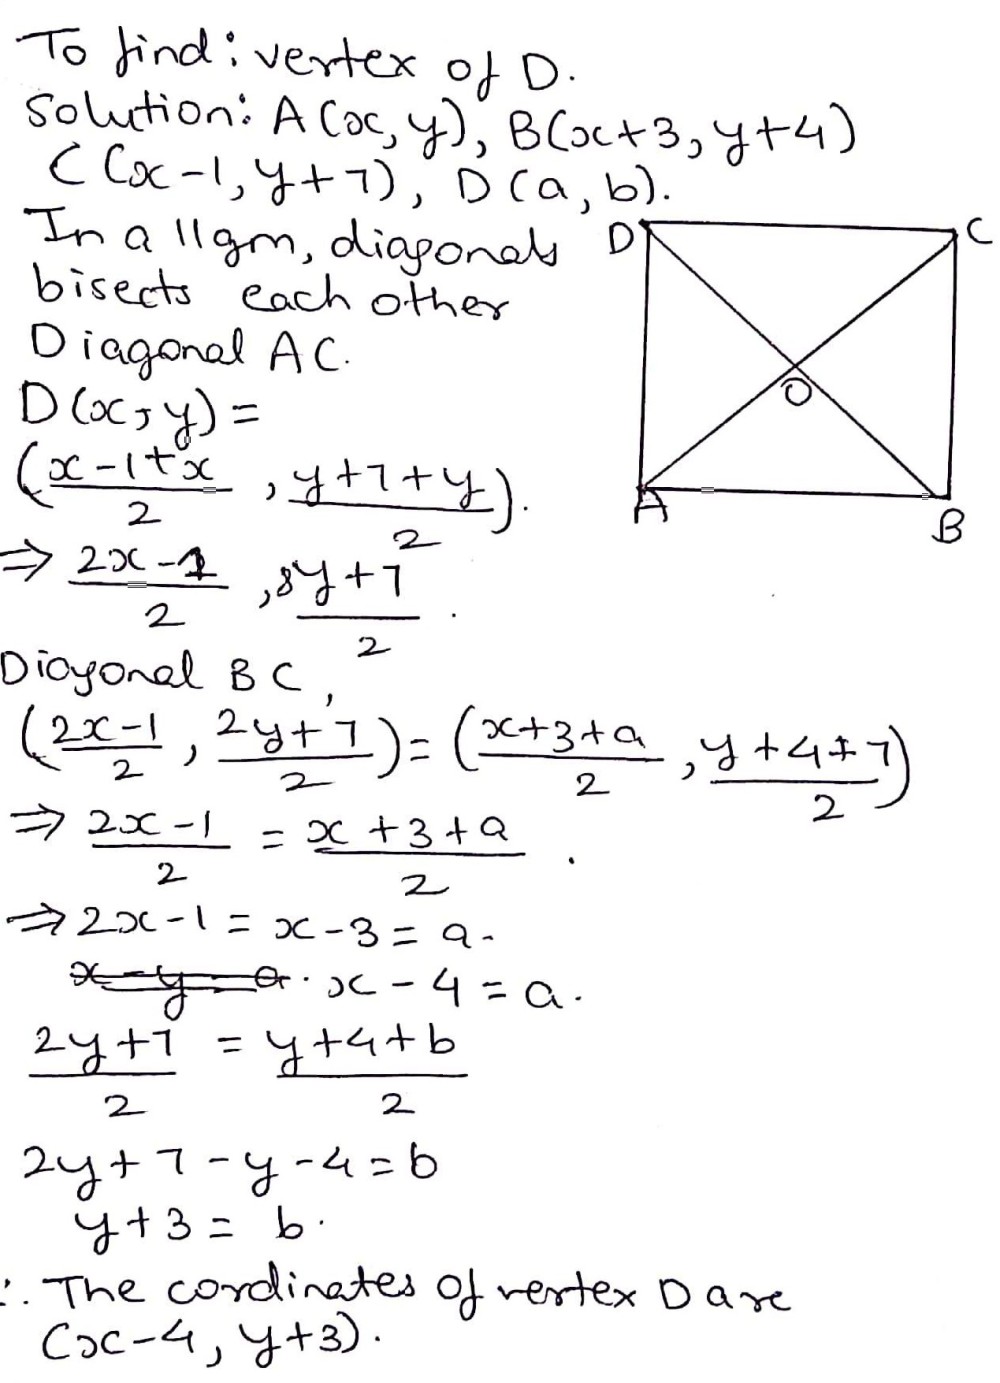 To find: vertex of D.
Solution: A(x, y), B(x+3, y+4)
C(x-1, y+7), D(a, b).
In a llgm, diagonals
bisects each other
Diagonal AC.
D(x, y) =
(x-1+x/2, y+7+y/2).
⇒ 2x-1/2, 8y+7/2.
Dioyonal BC,
(2x-1/2, 2y+7/2) = (x+3+a/2, y+4+7/2)
⇒ 2x-1/2 = x+3+a/2.
⇒ 2x-1 = x-3 = a.
x-4 = a.
2y+7/2 = y+4+b/2
2y+7-y-4=b
y+3 = b.
∴ The cordinates of vertex D are
(x-4, y+3).
D
C
O
A
B